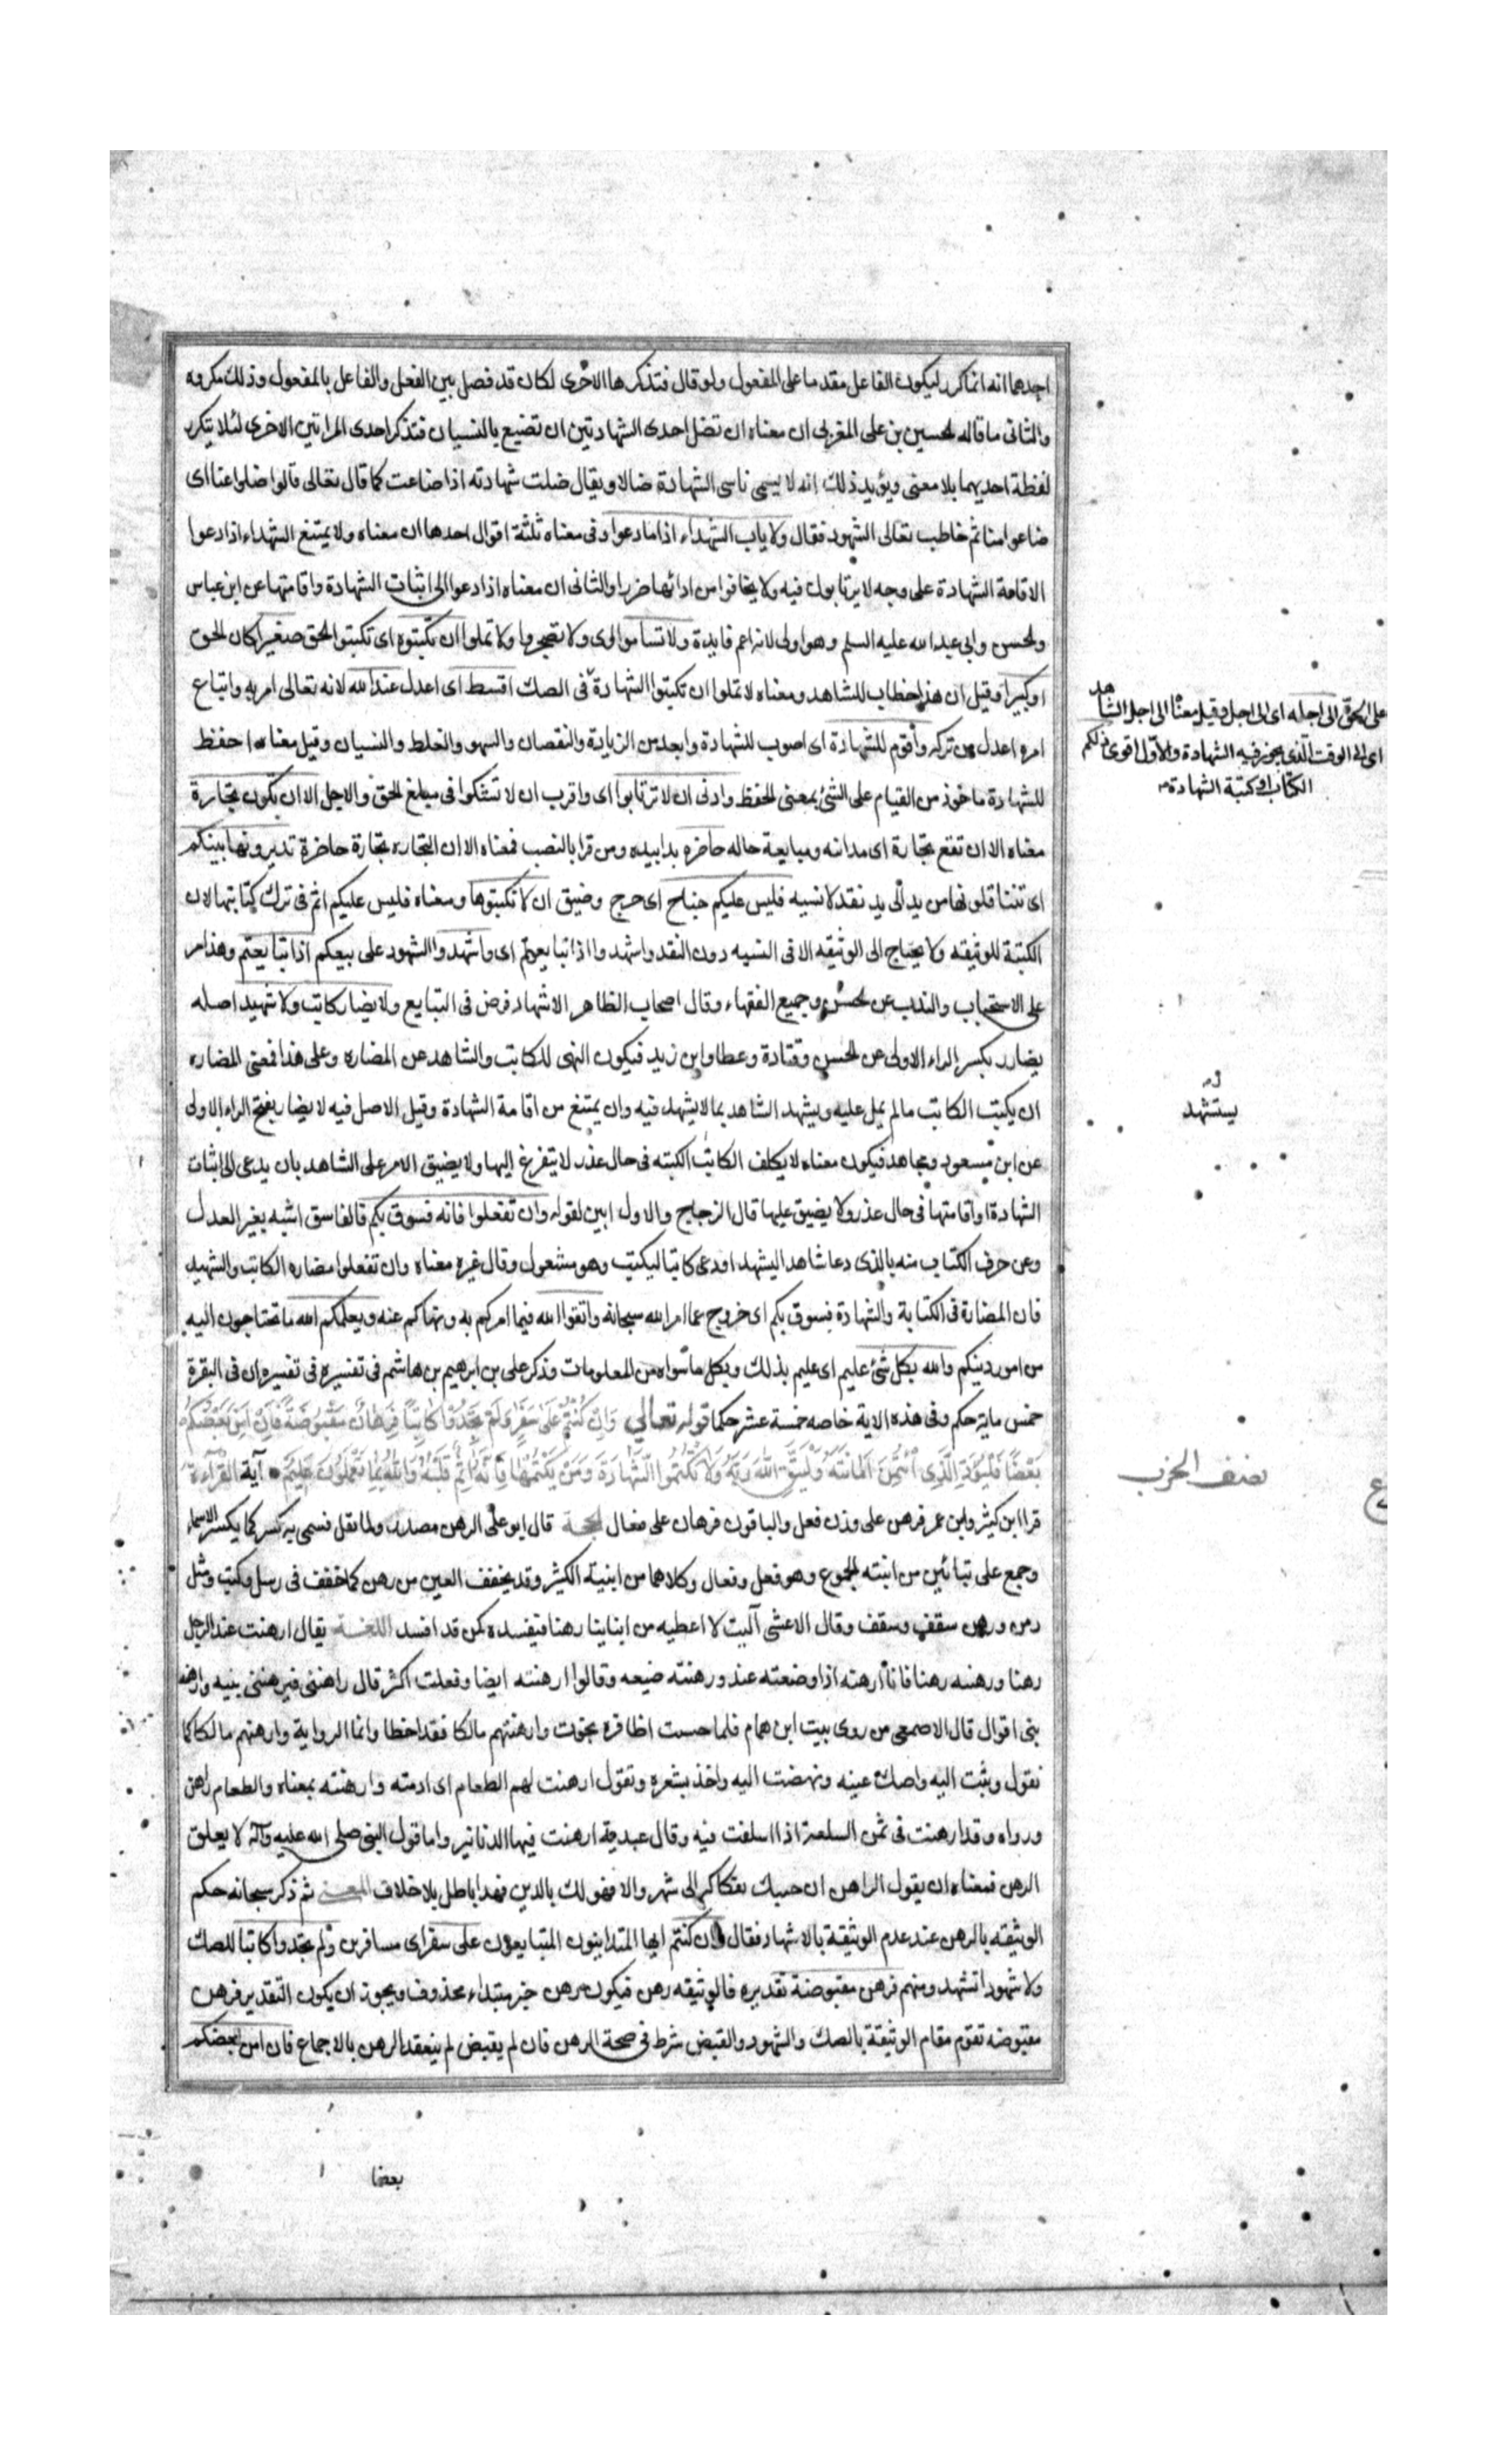 احدهما انه انما كرر ليكون الفاعل مقدما على المفعول ولو قال فتذكرها الاخرى لكان قد فصل بين الفعل والفاعل بالمفعول وذلك مكروه
والثانى ما قاله لحسين بن على المغربى ان معناه ان تضل احدى الشهادتين ان تضيع بالنسيان فتذكر احدى المراتين الاخرى لئلا يتكرر
لفظة احديهما بلا معنى ويؤيد ذلك انه لا يسمى ناسى الشهادة ضالا ويقال ضلت شهادته اذا ضاعت كما قال تعالى قالوا ضلوا عنا اى
ضاعوا منا ثم خاطب تعالى الشهود فقال ولا ياب الشهداء اذا ما دعوا وفى معناه ثلثة اقوال احدها ان معناه ولا يمتنع الشهداء اذا دعوا
الاقامة الشهادة على وجه لا يرتابون فيه ولا يخافوا من ادائها ضررا والثانى ان معناه اذا دعوا الى اثبات الشهادة واقامتها عن ابن عباس
ولحسن وابى عبد الله عليه السلم وهو اولى لانه اعم فايدة ولا تساموا اى ولا تضجروا ولا تملوا ان تكتبوه اى تكتبوا الحق صغيرا كان لحق
او كبيرا وقيل ان هذا خطاب للشاهد ومعناه لا تملوا ان تكتبوا الشهادة فى الصك اقسط اى اعدل عند الله لانه تعالى امر به واتباع
امره اعدل من تركه واقوم للشهادة اى اصوب للشهادة وابعد من الزيادة والنقصان والسهو والغلط والنسيان وقيل معناه احفظ
للشهادة ماخوذ من القيام على الشئ بمعنى لحفظ وادنى ان لا ترتابوا اى واقرب ان لا تشكوا فى مبلغ لحق والاجل الا ان تكون تجارة
معناه الا ان تقع تجارة اى مداينه ومبايعة حاله حاضره يدا بيده ومن قرا بالنصب فمعناه الا ان التجاره تجارة حاضرة تديرونها بينكم
اى تتناقلونها من يد الى يد نقد لا نسيه فليس عليكم جناح اى حرج وضيق ان لا تكتبوها ومعناه فليس عليكم اثم فى ترك كتابتها لان
الكتبة للوثيقه ولا يحتاج الى الوثيقه الا فى النسيه دون النقد واشهدوا اذا تبايعتم اى واشهدوا الشهود على بيعكم اذا تبايعتم وهذا امر
على الاستحباب والندب عن لحسن وجميع الفقهاء وقال اصحاب الظاهر الاشهاد فرض فى التبايع ولا يضار كاتب ولا شهيد اصله
يضارر بكسر الراء الاولى عن لحسن وقتادة وعطا وابن زيد فيكون النهى للكاتب والشاهد عن المضاره وعلى هذا فمعنى المضاره
ان يكتب الكاتب ما لم يمل عليه ويشهد الشاهد بما لا يشهد فيه وان يمتنع من اقامة الشهادة وقيل الاصل فيه لا يضارر بفتح الراء الاولى
عن ابن مسعود ومجاهد فيكون معناه لا يكلف الكاتب الكتبه فى حال عذر لا يتفرغ اليها ولا يضيق الامر على الشاهد بان يدعى الى اثبات
الشهادة او اقامتها فى حال عذر ولا يضيق عليها قال الزجاج والاول ابين لقوله وان تفعلوا فانه فسوق بكم فالفاسق اشبه بغير العدل
ومن حرف الكتاب منه بالذى دعا شاهدا ليشهد او دعى كاتبا ليكتب وهو مشغول وقال غيره معناه وان تفعلوا مضاره الكاتب والشهيد
فان المضارة فى الكتابة والشهادة فسوق بكم اى خروج عما امر الله سبحانه واتقوا الله فيما امركم به ونهاكم عنه ويعلمكم الله ما تحتاجون اليه
من امور دينكم والله بكل شئ عليم اى عليم بذلك وبكل ما سواه من المعلومات وذكر على بن ابرهيم بن هاشم فى تفسيره فى تفسيره ان فى البقرة
خمس ماية حكم وفى هذه الاية خاصه خمسة عشر حكما قوله تعالى وَاِنْ كُنْتُمْ عَلٰى سَفَرٍ وَلَمْ تَجِدُوا كَاتِبًا فَرِهَانٌ مَقْبُوضَةٌ فَاِنْ اَمِنَ بَعْضُكُمْ
بَعْضًا فَلْيُؤَدِّ الَّذِى اؤْتُمِنَ اَمَانَتَهُ وَلْيَتَّقِ اللهَ رَبَّهُ وَلَا تَكْتُمُوا الشَّهَادَةَ وَمَنْ يَكْتُمْهَا فَاِنَّهُ آثِمٌ قَلْبُهُ وَاللهُ بِمَا تَعْمَلُونَ عَلِيمٌ آية القراءة
قرا ابن كثير وابن عمر فرهن على وزن فعل والباقون فرهان على فعال لحجة قال ابو على الرهن مصدر ولما نقل فسمى به كسر كما يكسر الاسماء
وجمع على بنائين من ابنيته لجموع وهو فعل وفعال وكلاهما من ابنية الكثير وقد يخفف العين من رهن كما خفف فى رسل وكتب ومثل
رهن ورهن سقف وسقف وقال الاعشى آليت لا اعطيه من ابناينا رهنا فيفسده كمن قد افسد اللغة يقال ارهنت عند الرجل
رهنا ورهنته رهنا فانا ارهنه اذا وضعته عنده ورهنته ضيعه وقالوا ارهنته ايضا وفعلت اكثر قال راهننى فيرهننى بنيه وارهنه
بنى اقوال قال الاصمعى من روى بيت ابن همام فلما حست اظافره نجوت وارهنتهم مالكا فقد اخطا وانما الرواية وارهنهم مالكا كما
نقول وثبت اليه واصك عينه ونهضت اليه واخذ بشعره وتقول ارهنت لهم الطعام اى ادمته وارهنته بمعناه والطعام راهن
ورواه وقد ارهنت فى ثمن السلعة اذا اسلفت فيه وقال عبدية ارهنت فيها الدنانير واما قول النبى صلى الله عليه وآله لا يغلق
الرهن فمعناه ان يقول الراهن ان جيتك بفكاكه الى شهر والا فهو لك بالدين فهذا باطل بلا خلاف المعنى ثم ذكر سبحانه حكم
الوثيقه بالرهن عند عدم الوثيقة بالاشهاد فقال وان كنتم ايها المتداينون المتبايعون على سفر اى مسافرين ولم تجدوا كاتبا للصك
ولا شهودا تشهدونهم فرهن مقبوضة تقديره فالوثيقه رهن فيكون رهن خبر مبتداء محذوف ويجوز ان يكون التقدير فرهن
مقبوضه تقوم مقام الوثيقة بالصك والشهود والقبض شرط فى صحة الرهن فان لم يقبض لم ينعقد الرهن بالاجماع فان امن بعضكم
بعضا
على الحق الى اجله اى الى اجل وقيل معناه الى اجل الشاهد
اى الى الوقت الذى يجوز فيه الشهادة والاول اقوى ذلكم
الكتاب او كتبة الشهادة
يستشهد
نصف الحزب